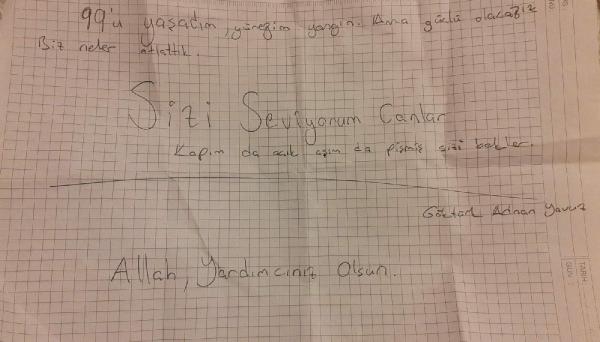 99'u yaşadım, yüreğim yangın. Ama güçlü olacağız
Biz neler atlattık.
Sizi Seviyorum Canlar
Kapım da açık aşım da pişmiş sizi bekler.
Adnan Yavuz
Allah, Yardımcınız Olsun.
TARİH
GÜN